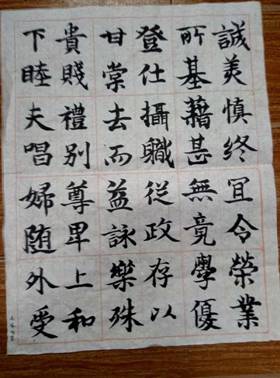 誠美慎終宜令榮業
所基藉甚無竟學優
登仕攝職從政存以
甘棠去而益詠樂殊
貴賤禮別尊卑上和
下睦夫唱婦随外受